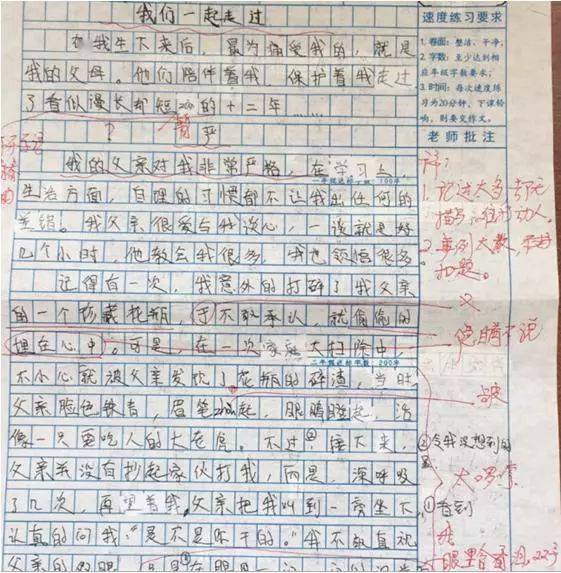 我们一起走过
在我生下来后，最为疼爱我的，就是
我的父母。他们陪伴着我，保护着我走过
了看似漫长却短的十二年……
暂
？
严
我的父亲对我非常严格，在学习上，
一年级达标字数：100字
生活方面，自理的习惯都不让我出任何的
差错。我父亲很爱与我谈心，一谈就是好
几个小时，他教会我很多，我也领悟很多。
记得有一次，我意外的打碎了我父亲
的一个珍藏花瓶，于不敢承认，就偷偷的
埋在心中。可是，在一次家庭大扫除中，
二年级达标字数：200字
不小心就被父亲发现了花瓶的碎渣，当时
父亲脸色铁青，眉笔起，眼睛瞪起，活
像一只要吃人的大老虎。不过，接下来，
父亲并没有抄起家伙打我，而是，深呼吸
了几次，再望着我，父亲把我叫到一旁坐下
认真的问我："是不是你干的。"我不敢直视
速度练习要求
1. 卷面：整洁、干净；
2. 字数：至少达到相
应年级字数要求；
3. 时间：每次速度练
习为20分钟，下课铃
响，则要交作文。
老师批注
评：
1. 记述太多，却无
描写，很动人。
2. 事例太散，
扣题。
瞒不说
②令我没想到的
是
太啰嗦
①看到
眼里含着泪，